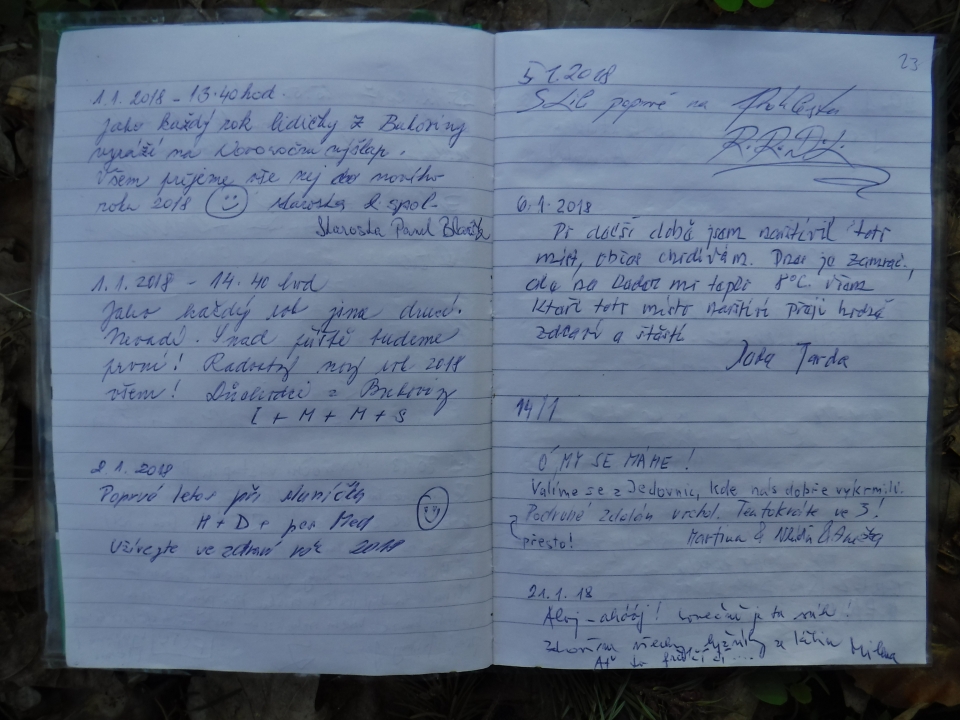 1.1. 2018 - 13.40 hod.
Jako každý rok lidičky z Bukoviny
vyráží na Novoroční výšlap.
Všem přejeme vše nej do nového
roku 2018 starostka & spol.
Starosta Pavel
1.1. 2018 - 14.40 hod
Jako každý rok jsme druzí.
Nevadí. Snad příště budeme
první! Radostný nový rok 2018
všem! z Bukoviny
I + M + M + S
2 1. 2018
Poprvé letos při
M + D + pes Med
Užívejte ve zdraví rok 2018
23
5 1. 2018
poprvé na
R.R.
6.1. 2018
Po delší době jsem navštívil toto
místo, občas chodívám. Dnes je zamrač.,
ale na Leden mi teplo 8°C. Všem
kteří toto místo navštíví přeji hodně
zdraví a štěstí
Jarda
14/1
Ó, MY SE MÁME!
Valíme se z Jedovnic, kde nás dobře vykrmili.
Podruhé zdolán vrchol. Tentokráte ve 3!
přesto! Martina & &
21.1. 18
Ahoj - ahóój! konečně je tu sníh!
Zdravíme všechny lyžníky a Milena
Ať to